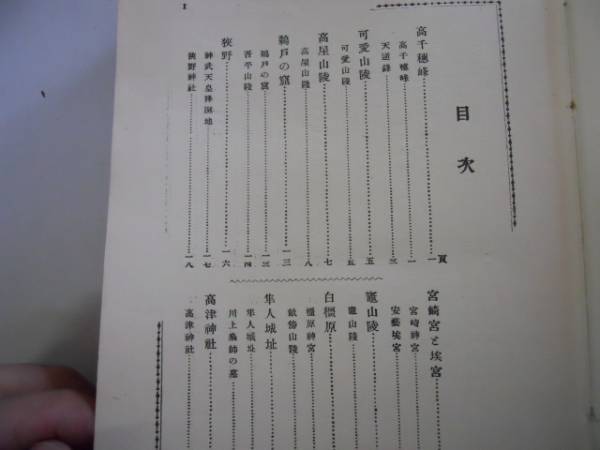 目次
頁
高千穗峰……一
高千穗峰……一
天逆鉾……三
可愛山陵……五
可愛山陵……五
高屋山陵……七
高屋山陵……八
鵜戸の窟……一三
鵜戸の窟……一三
吾平山陵……一四
狹野……一六
神武天皇降誕地……一七
狹野神社……一八
宮崎宮と埃宮
宮崎神宮
安藝埃宮
竈山陵
竈山陵
白檮原
橿原神宮
畝傍山陵
隼人城址
隼人城址
川上梟師の墓
高津神社
高津神社
1